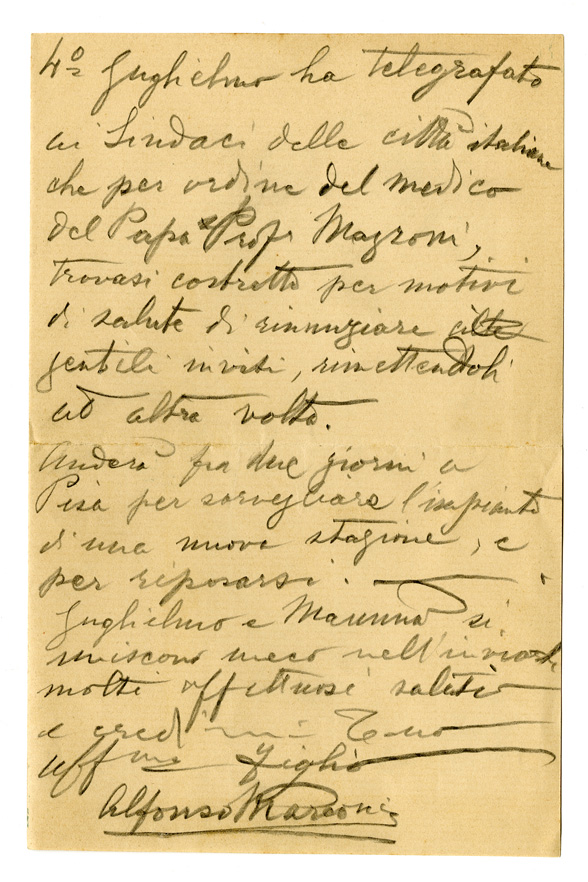 4º Guglielmo ha telegrafato
ai Sindaci delle città italiane
che per ordine del medico
del Papa Prof Mazzoni,
trovasi costretto per motivi
di salute di rinunziare
gentili inviti, rimettendoli
ad altra volta.
Anderà fra due giorni a
Pisa per sorvegliare l'impianto
di una nuova stazione, e
per riposarsi.
Guglielmo e Mamma si
uniscono meco nell'inviarti
molti affettuosi saluti
e credimi Tuo
aff.mo Figlio
Alfonso Marconi